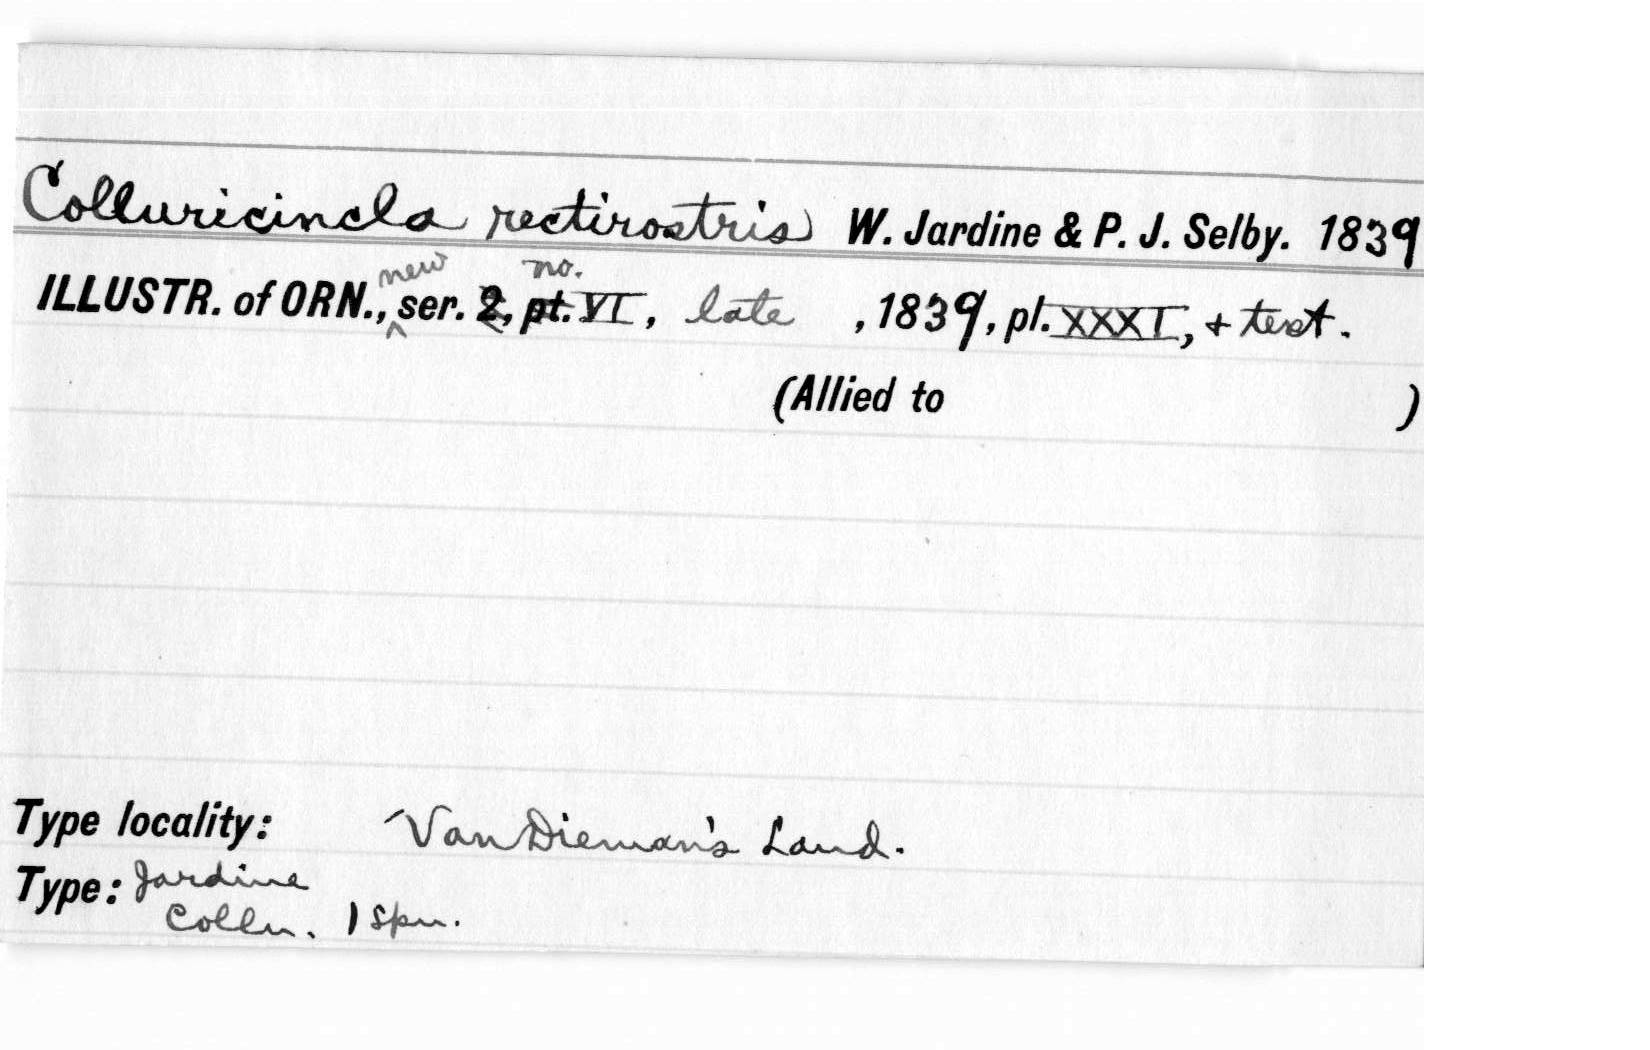 Colluricincla rectirostris W. Jardine & P. J. Selby. 1839
ILLUSTR. of ORN., new ser. 2, pt. no. VI, late , 1839, pl. XXXI, + text.
(Allied to )
Type locality: Van Dieman's Land.
Type: Jardine
Colln. 1 spn.